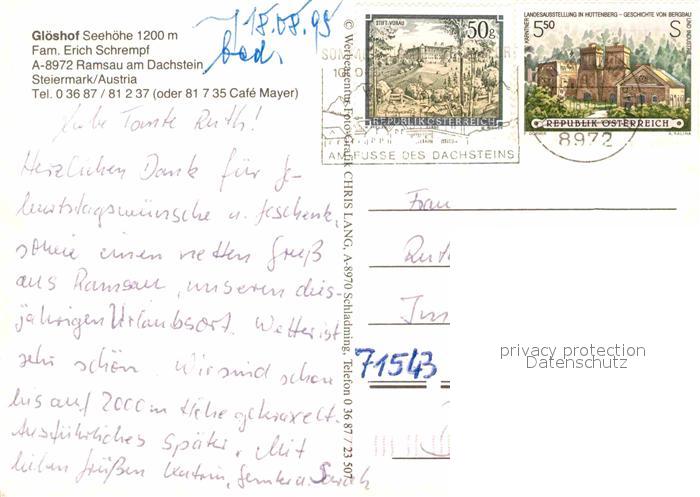 Glöshof Seehöhe 1200 m
Fam. Erich Schrempf
A-8972 Ramsau am Dachstein
Steiermark/Austria
Tel. 0 36 87 / 81 2 37 (oder 81 7 35 Café Mayer)
18.08.95
Liebe Tante Ruth!
Herzlichen Dank für Ge-
burtstagswünsche u. Geschenk,
sowie einen netten Gruß
aus Ramsau, unseren dies-
jährigen Urlaubsort. Wetter ist
sehr schön. Wir sind schon
bis auf 2000 m Höhe gekraxelt.
Ausführliches später. Mit
lieben Grüßen Katrin, u. Sarah
© Werbeagentur Foto-Grafik CHRIS LANG, A-8970 Schladming, Telefon 0 36 87 / 23 507
STIFT VORAU
50g
REPUBLIK ÖSTERREICH
KÄRNTNER LANDESAUSSTELLUNG IN HÜTTENBERG - GESCHICHTE VON BERGBAU UND INDUSTRIE
5.50 S
REPUBLIK ÖSTERREICH
AM FUSSE DES DACHSTEINS
8972
Frau
Ruth
71543
privacy protection
Datenschutz